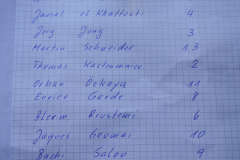 Jamal el Khattouti 4
Jerg Jung 3
Martin Schneider 13
Thomas Kastenmaier 2
Orhan Özkaya 11
Enrico Gaede 8
Blerim Rrustemi 6
Jaques Geumai 10
Bachi Salou 9